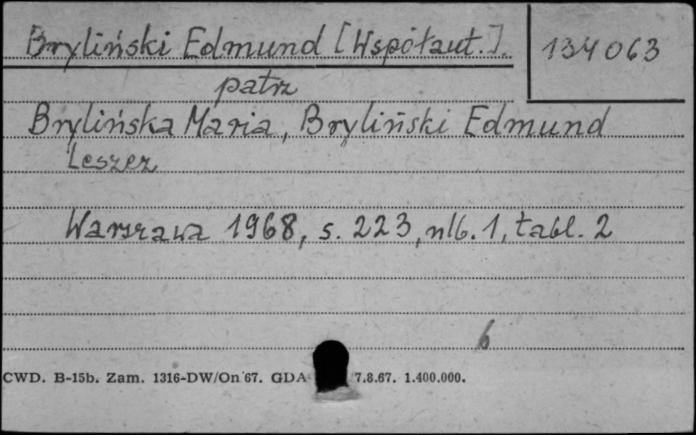 Bryliński Edmund [Współaut.].
134063
patrz
Brylińska Maria, Bryliński Edmund
Leszez
Warszawa 1968, s. 223, nlb. 1, tabl. 2
b
CWD. B-15b. Zam. 1316-DW/On 67. GDA 7.8.67. 1.400.000.